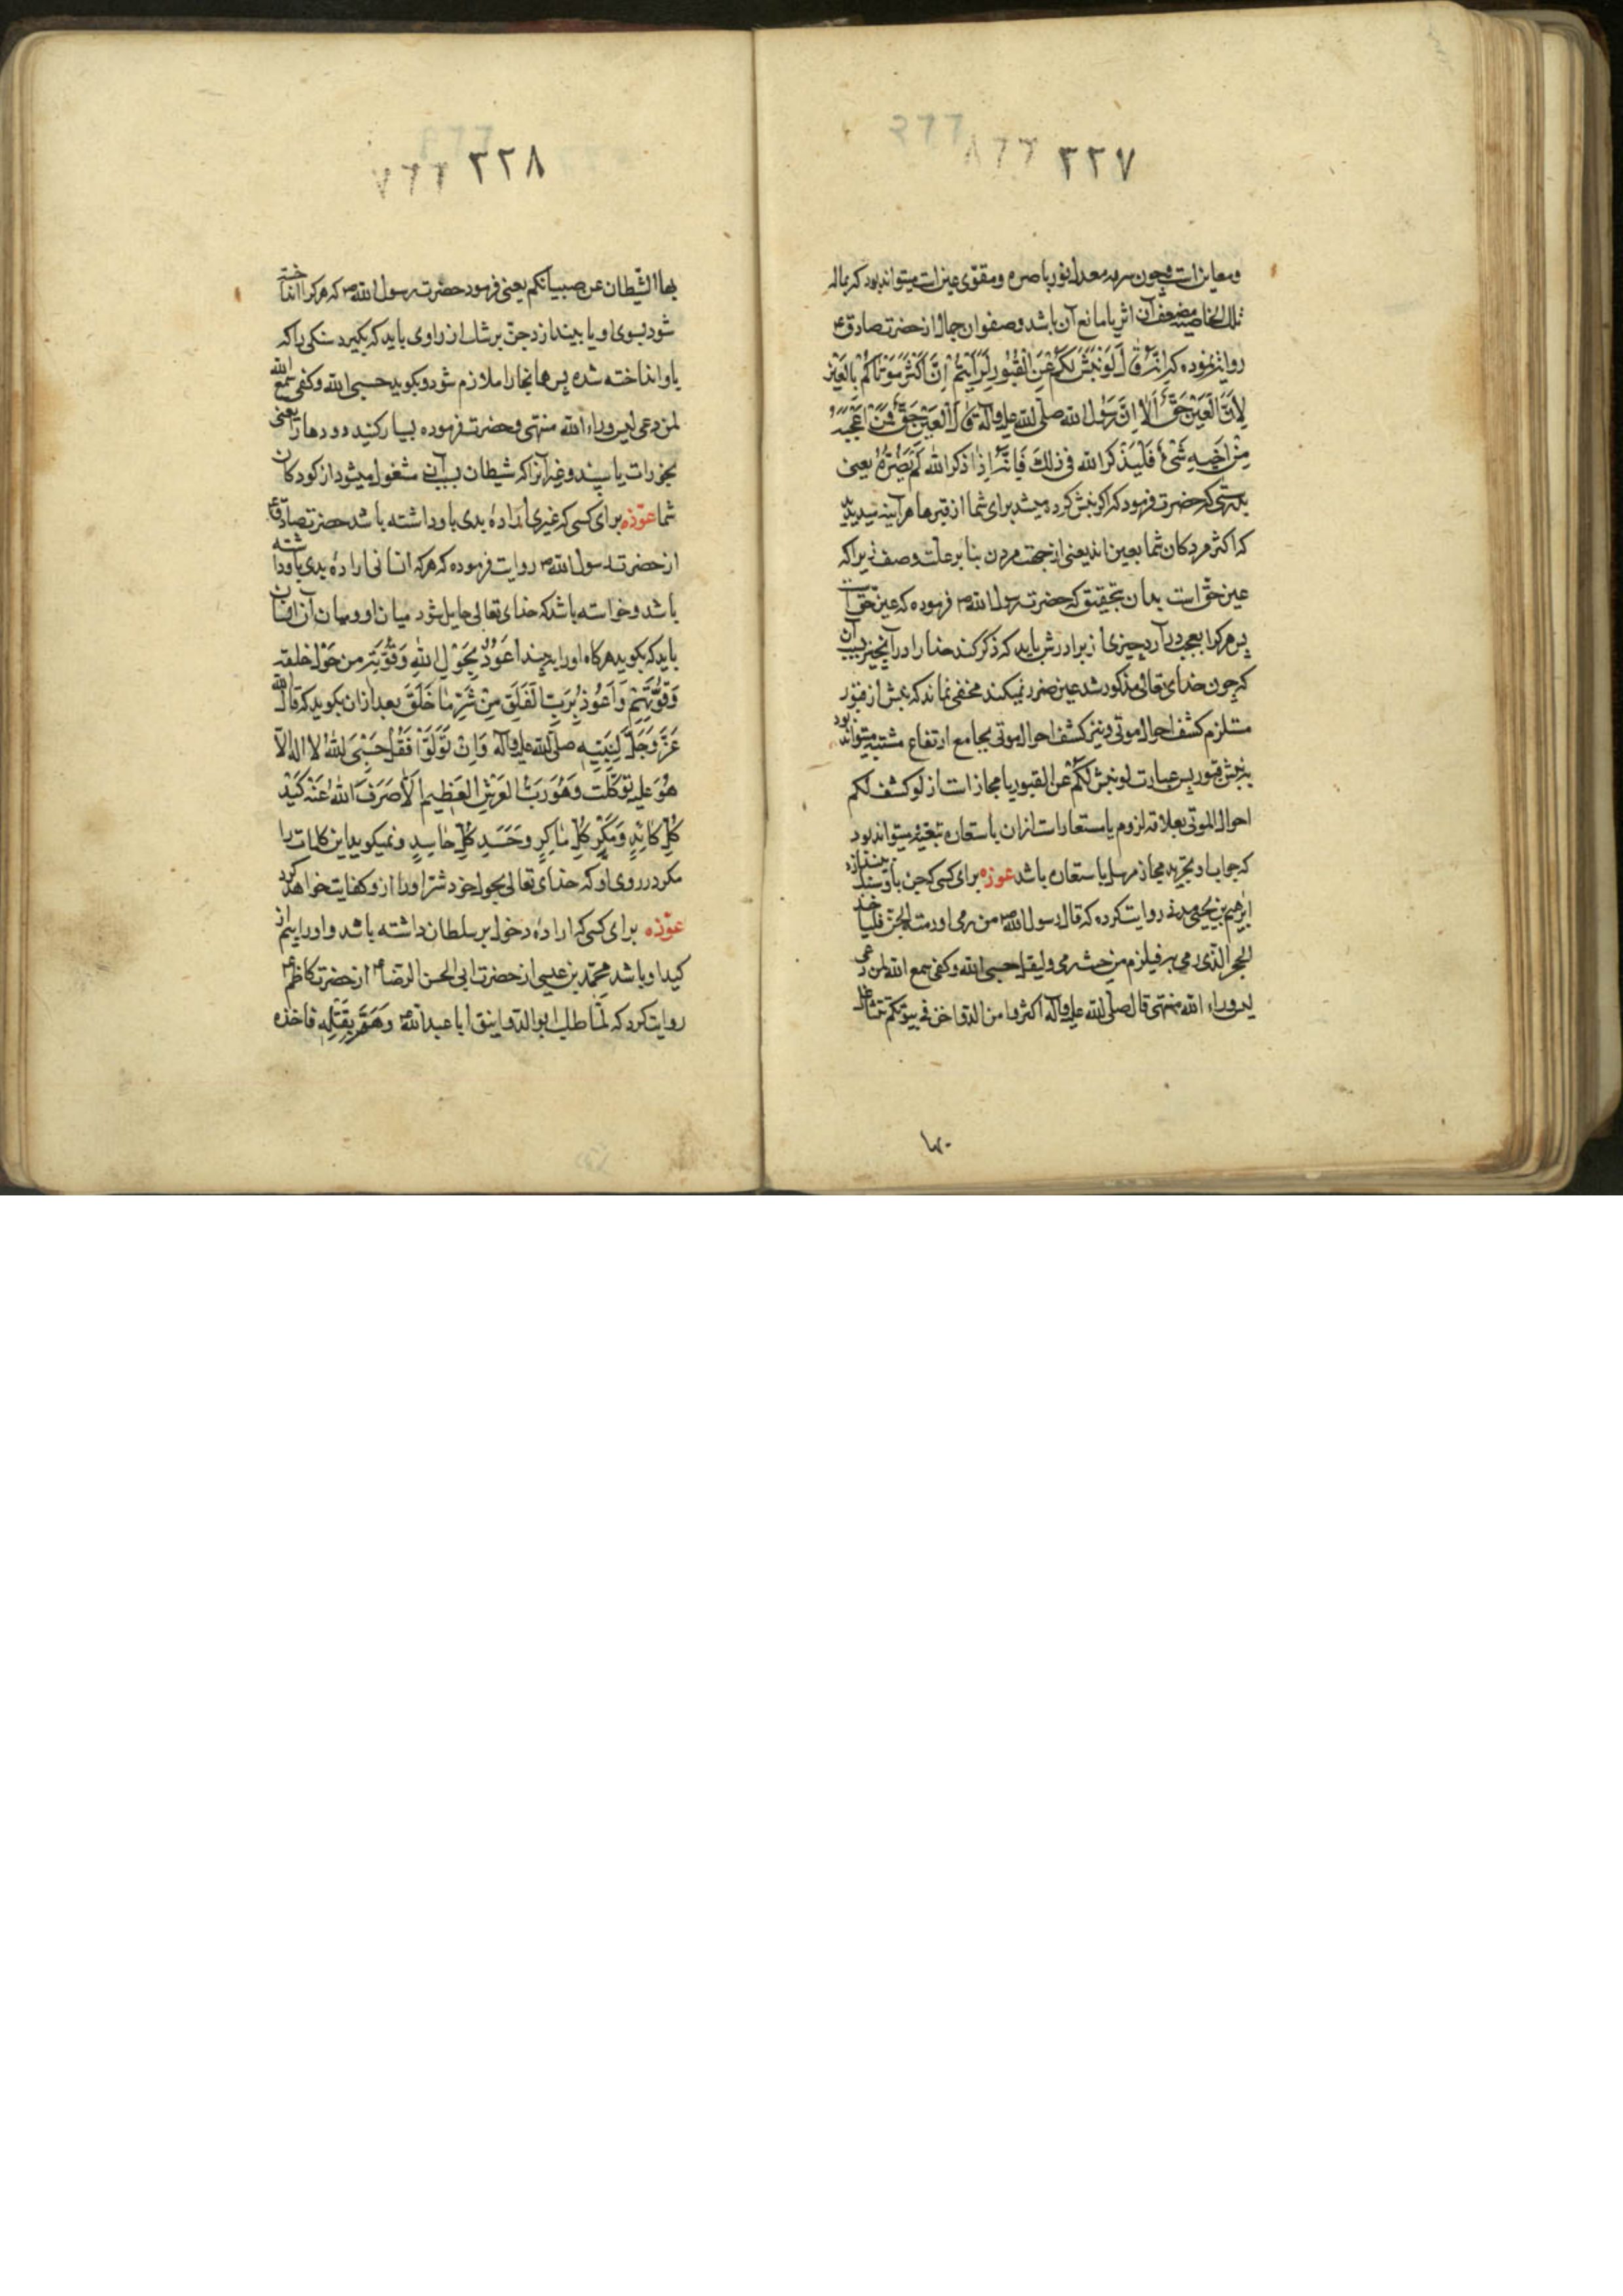 ٢٢٧
ومعاین است وچون سرمه معد نور باصره ومقوی عین است میتواند بود که بماله
تلك الخاصیه مضعف آن اثر یا مانع آن باشد وصفوان جمال از حضرت صادق ع
روایت نموده که اِنَّهُ قالَ لَو نُبِشَ لَکُم عَنِ القُبُورِ لَرَاَیتُم اِنَّ اَکثَرَ مَوتاکُم بِالعَین
لِاَنَّ العَینَ حَقٌّ اَلا اِنَّ رَسُولَ الله صلّی الله علیه وآله قالَ العَینُ حَقٌّ فَمَن اَعجَبَهُ
مِن اَخیهِ شَیءٌ فَلیَذکُرِ الله فی ذلِكَ فَاِنَّهُ اِذا ذَکَرَ الله لَم یَضُرَّهُ یعنی
بدرستی که حضرت فرمود که اگر نبش کرده میشد برای شما از قبرها هرآینه میدیدید
که اکثر مردکان شما بعین اند یعنی از جهت مردن بنا بر علت وصف زیرا که
عین حقّ است بدان بتحقیق که حضرت رسول الله ص فرموده که عین حقّ است
پس هرکرا بعجب درآرد چیزی از برادرش باید که ذکر کند خدا را در آن چیز بسبب آن
که چون خدای تعالی مذکور شد عین ضرر نمیکند مخفی نماند که نبش از قبور
مستلزم کشف احوال موتی ونیز کشف احوال موتی بجامع ارتفاع مشتبه میتواند بود
بنبش قبور پس عبارت لو نبش لکم عن القبور یا مجاز است از لو کشف لکم
احوال الموتی بعلاقه لزوم یا استعاره است ازان باستعاره تبعیه میتواند بود
که جواب او مجاز مرسل یا استعاره باشد عوذه برای کسی که جن باو سنك میندازد
ابرهیم بن یحیی مدنی روایت کرده که قال رسول الله ص من رمی اورمته الجن فلیاخذ
الحجر الّذی رمی به فلیرم من حیث رمی ولیقل حسبی الله وکفی سمع الله لمن دعی
لیس وراء الله منتهی قال صلّی الله علیه وآله اکثروا من الدواجن فی بیوتکم تتشاغل
٢٢٨
بها الشّیطان عن صبیانکم یعنی فرمود حضرت رسول الله ص که هرکرا انداخته
شود بسوی او یا بیندازد جن برشك از راوی باید که بکیرد سنکی را که
باو انداخته شده پس همانجا را ملازم شود وبکوید حسبی الله وکفی سمع الله
لمن دعی لیس وراء الله منتهی وحضرت فرموده بسیار کنید دودها را یعنی
بخورات یا سپند وغیر آنرا که شیطان بسبب آن مشغول میشود از کودکان
شما عوّذه برای کسی که غیری اراده بدی باو داشته باشد حضرت صادق ع
از حضرت رسول الله ص روایت فرموده که هرکه انسانی اراده بدی باو داشته
باشد وخواسته باشد که خدای تعالی حایل شود میان او ومیان آن انسان
باید که بکوید هرکاه او را به بیند اَعُوذُ بِحَولِ اللهِ وَقُوَّتِهِ مِن حَولِ خلقه
وَقُوَّتِهِم وَاَعُوذُ بِرَبِّ الفَلَقِ مِن شَرِّ ما خَلَقَ بعد ازان بکوید که قال الله
عَزَّوَجَلَّ لِنَبِیِّهِ صلّی الله علیه وآله وَاِن تَوَلَّوا فَقُل حَسبِیَ اللهُ لا اله الا
هُوَ علیه تَوَکَّلتُ وَهُوَ رَبُّ العَرشِ العَظیمِ الّا صَرَفَ اللهُ عَنهُ کَیدَ
کُلِّ کائِدٍ وَمَکرَ کُلِّ ماکِرٍ وحَسَدَ کُلِّ حاسِدٍ ونمیکوید این کلمات را
مکر در روی او که خدای تعالی بحول خود شرّ او را ازو کفایت خواهد کرد
عوّذه برای کسی که اراده دخول بر سلطان داشته باشد واو را بیم از
کید او باشد محمّد بن عیسی از حضرت ابی الحسن الرضا ع از حضرت کاظم ع
روایت کرد که لَمّا طلب ابو الدوانیق ابا عبدالله ع وَهَمَّ بِقَتلِهِ فاخذه